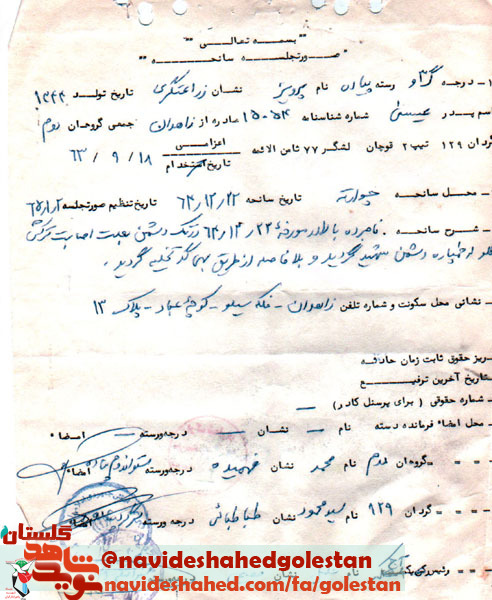 "" بسمه تعالی ""
"" صورتجلسه سانحه ""
۱- درجه گ۳و رسته پیاده نام پرویز نشان زراعتگری تاریخ تولد ۱۳۴۴
اسم پدر عیسی شماره شناسنامه ۱۵۰۵۴ صادره از زاهدان جمعی گروهان دوم
گردان ۱۲۹ تیپ ۲ قوچان لشگر ۷۷ ثامن الائمه اعزامی ۶۳/۹/۱۸
تاریخ استخدام
- محل سانحه چوارته تاریخ سانحه ۶۴/۱۲/۲۲ تاریخ تنظیم صورتجلسه
- شرح سانحه . نامبرده بالا در مورخه ۶۴/۱۲/۲۲ دشمن بعلت اصابت ترکش
خمپاره دشمن شهید گردید و بلافاصله از طریق تخلیه گردید .
- نشانی محل سکونت و شماره تلفن زاهدان - فلکه سیلو - کوچه عباد - پلاک ۱۳
ریز حقوق ثابت زمان حادثه
تاریخ آخرین ترفیع
- شماره حقوقی ( برای پرسنل کادر )
- محل امضاء فرمانده دسته نام - نشان - درجه ورسته - امضاء
" " " گروهان دوم نام محمد نشان فهمیده درجه ورسته ستواندوم پیاده امضاء
" " " گردان ۱۲۹ نام سید محمود نشان طباطبائی درجه ورسته
" " رئیس رکن
نوید شاهد گلستان
@navideshahedgolestan
navideshahed.com/fa/golestan